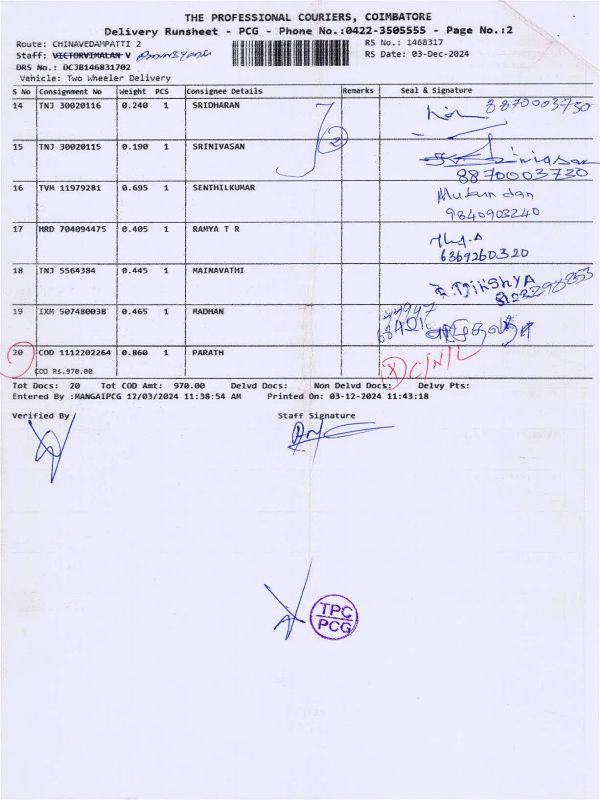 THE PROFESSIONAL COURIERS, COIMBATORE
Delivery Runsheet - PCG - Phone No.:0422-3505555 - Page No.:2
Route: CHINAVEDAMPATTI 2
RS No.: 1468317
Staff: VICTORVIMALAN V
RS Date: 03-Dec-2024
DRS No.: DCJB146831702
Vehicle: Two Wheeler Delivery
S No Consignment No Weight PCS Consignee Details Remarks Seal & Signature
14 TNJ 30020116 0.240 1 SRIDHARAN 8870003730
2
15 TNJ 30020115 0.190 1 SRINIVASAN Srinivasan
8870003720
16 TVM 11979281 0.695 1 SENTHILKUMAR Mukundan
9840903240
17 HRD 704094475 0.405 1 RAMYA T R
6369260320
18 TNJ 5564384 0.445 1 MAINAVATHI R.Dikshya
19 IXM 507480038 0.465 1 MADHAN
20 COD 1112202264 0.860 1 PARATH C/N/L
COD Rs.970.00
Tot Docs: 20 Tot COD Amt: 970.00 Delvd Docs: Non Delvd Docs: Delvy Pts:
Entered By :MANGAIPCG 12/03/2024 11:38:54 AM Printed On: 03-12-2024 11:43:18
Verified By Staff Signature
TPC
PCG